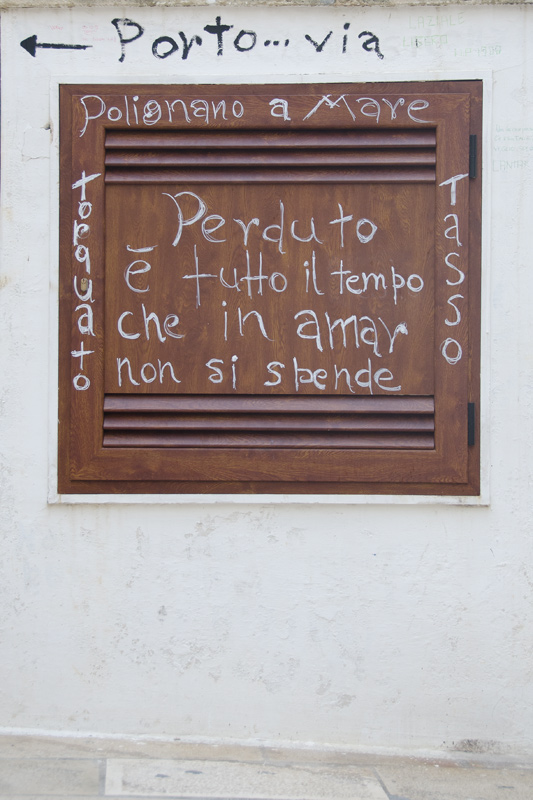 ← Porto... via
Polignano a Mare
Torquato
Perduto
è tutto il tempo
che in amar
non si spende
Tasso